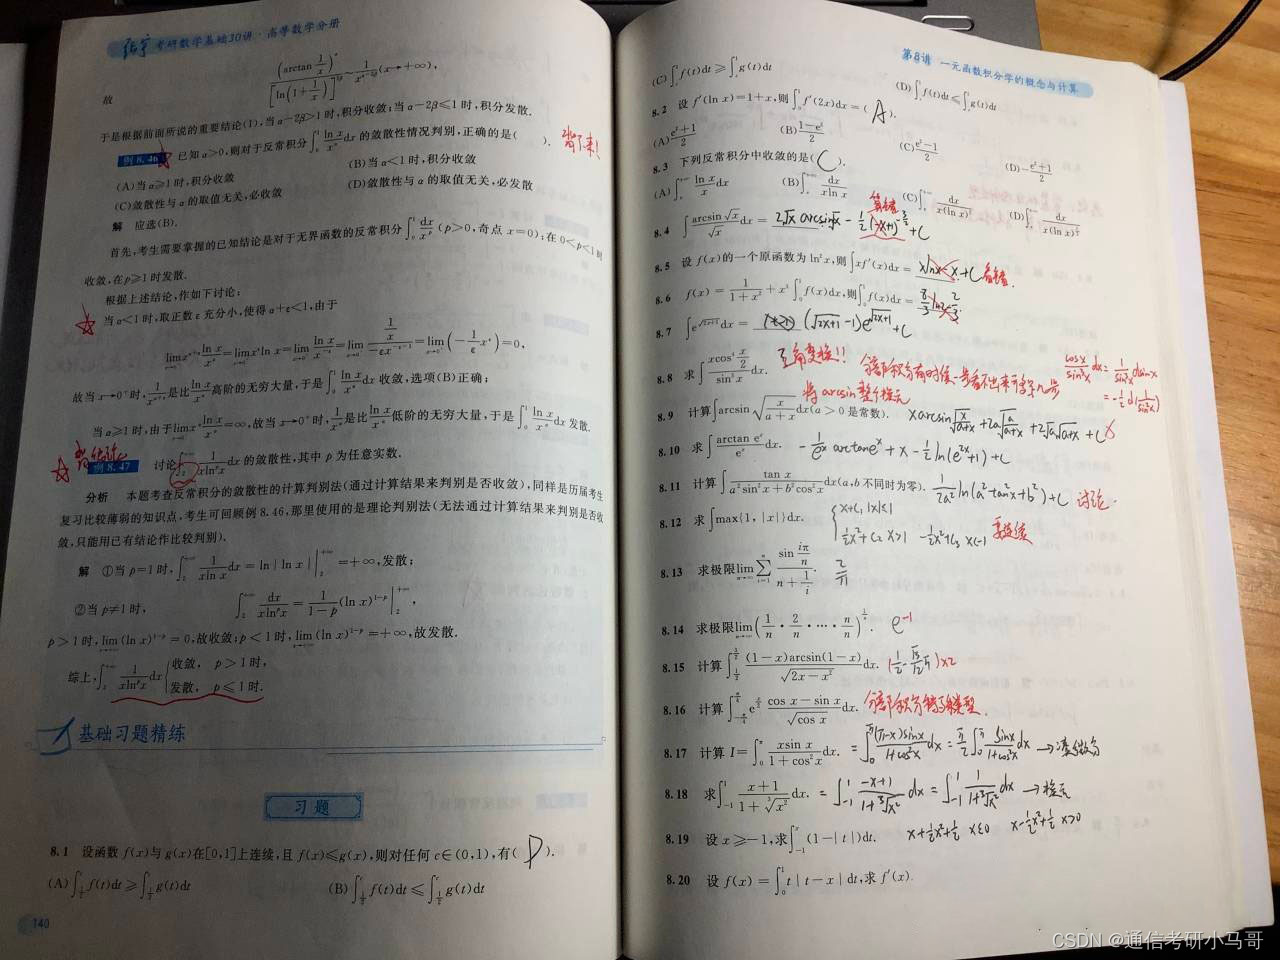 张宇 考研数学基础30讲·高等数学分册
故 (arctan 1/x)^α / [ln(1+1/x)]^{2β} ~ 1/x^{α-2β} (x→+∞),
于是根据前面所说的重要结论(1),当α-2β>1时,积分收敛;当α-2β≤1时,积分发散.
例 8.46 已知α>0,则对于反常积分∫_0^1 ln x/x^α dx 的敛散性情况判别,正确的是( ).
(A)当α≥1时,积分收敛 (B)当α<1时,积分收敛
(C)敛散性与α的取值无关,必收敛 (D)敛散性与α的取值无关,必发散
解 应选(B).
首先,考生需要掌握的已知结论是对于无界函数的反常积分∫_0^1 dx/x^p (p>0,奇点x=0):在0<p<1时
收敛,在p≥1时发散.
根据上述结论,作如下讨论:
当α<1时,取正数ε充分小,使得α+ε<1,由于
故当x→0⁺时,1/x^{α+ε}是比ln x/x^α高阶的无穷大量,于是∫_0^1 ln x/x^α dx 收敛,选项(B)正确;
当α≥1时,由于lim ln x/x^α=∞,故当x→0⁺时,1/x^α是比ln x/x^α低阶的无穷大量,于是∫_0^1 ln x/x^α dx 发散.
例 8.47 讨论∫_2^{+∞} 1/(x ln^p x) dx 的敛散性,其中p为任意实数.
分析 本题考查反常积分的敛散性的计算判别法(通过计算结果来判别是否收敛),同样是历届考生
复习比较薄弱的知识点,考生可回顾例8.46,那里使用的是理论判别法(无法通过计算结果来判别是否收
敛,只能用已有结论作比较判别).
解 ①当p=1时,∫_2^{+∞} 1/(x ln x) dx=ln|ln x| |_2^{+∞}=+∞,发散;
②当p≠1时, ∫_2^{+∞} dx/(x ln^p x)=1/(1-p) (ln x)^{1-p} |_2^{+∞},
p>1时,lim_{x→+∞}(ln x)^{1-p}=0,故收敛;p<1时,lim_{x→+∞}(ln x)^{1-p}=+∞,故发散.
综上,∫_2^{+∞} 1/(x ln^p x) dx {收敛, p>1时,
发散, p≤1时.
基础习题精练
习题
8.1 设函数f(x)与g(x)在[0,1]上连续,且f(x)≤g(x),则对任何c∈(0,1),有( D ).
(A)∫_{1/2}^c f(t)dt≥∫_{1/2}^c g(t)dt (B)∫_{1/2}^c f(t)dt≤∫_{1/2}^c g(t)dt
140
第8讲 一元函数积分学的概念与计算
(C)∫_c^1 f(t)dt≥∫_c^1 g(t)dt (D)∫_c^1 f(t)dt≤∫_c^1 g(t)dt
8.2 设f′(ln x)=1+x,则∫_0^1 f′(2x)dx=( A ).
(A)(e²+1)/2 (B)(1-e²)/2 (C)(e²-1)/2 (D)-(e²+1)/2
8.3 下列反常积分中收敛的是( C ).
(A)∫_e^{+∞} ln x/x dx (B)∫_e^{+∞} dx/(x ln x) (C)∫_e^{+∞} dx/(x(ln x)²) (D)∫_e^{+∞} dx/(x(ln x)^{1/2})
8.4 ∫ arcsin√x/√x dx = 2√x arcsin√x - ½(-x+1)^{3/2}+C
8.5 设f(x)的一个原函数为ln²x,则∫xf′(x)dx= xlnx-x+C 看错
8.6 f(x)=1/(1+x²)+x³∫_0^1 f(x)dx,则∫_0^1 f(x)dx=
8.7 ∫e^{√(2x+1)}dx= (√(2x+1)-1)e^{√(2x+1)}+C
8.8 求∫ x cos⁴(x/2)/sin³x dx. 三角变换!!
分部积分有时候一步看不出来可多写几步
cosx/sin³x dx=1/sin³x dsinx
=-½d(1/sin²x)
将arcsin整个换元
8.9 计算∫arcsin√(x/(a+x))dx(a>0是常数). x arcsin√(x/(a+x))+2a√(a/(a+x))+2√a√(a+x)+C
8.10 求∫ arctan e^x/e^x dx. -1/e^x arctane^x+x-½ln(e^{2x}+1)+C
8.11 计算∫ tan x/(a²sin²x+b²cos²x)dx(a,b不同时为零). 1/(2a²) ln(a²tan²x+b²)+C 讨论
8.12 求∫max{1,|x|}dx. {x+C₁ |x|<1
½x²+C₂ x>1 -½x²+C₃ x<-1 要连续
8.13 求极限lim_{n→∞}∑_{i=1}^n sin(iπ/n)/(n+1/i). 2/π
8.14 求极限lim_{n→∞}(1/n·2/n·…·n/n)^{1/n}. e^{-1}
8.15 计算∫_{1/2}^{3/2} (1-x)arcsin(1-x)/√(2x-x²) dx. (½-√3/12 π)×2
8.16 计算∫_{-π/4}^{π/4} e^{x/2} (cos x-sin x)/√(cos x) dx.
8.17 计算I=∫_0^π xsin x/(1+cos²x)dx. =∫_0^π (π-x)sinx/(1+cos²x)dx=π/2∫_0^π sinx/(1+cos²x)dx →凑微分
8.18 求∫_{-1}^1 (x+1)/(1+∛(x²))dx. =∫_{-1}^1 (-x+1)/(1+∛(x²))dx=∫_{-1}^1 1/(1+∛(x²))dx →换元
8.19 设x≥-1,求∫_{-1}^x (1-|t|)dt. x+½x²+½ x≤0 x-½x²+½ x>0
8.20 设f(x)=∫_0^1 t|t-x|dt,求f′(x).
CSDN @通信考研小马哥